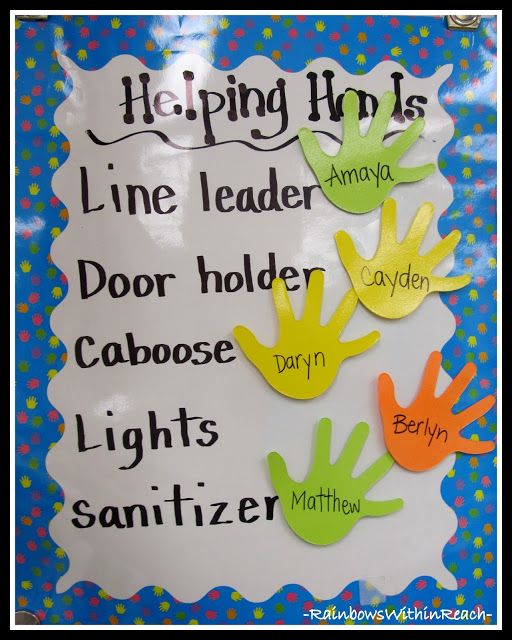 Helping Hands
Line leader Amaya
Door holder Cayden
Caboose Daryn
Lights Berlyn
sanitizer Matthew
-RainbowsWithinReach-